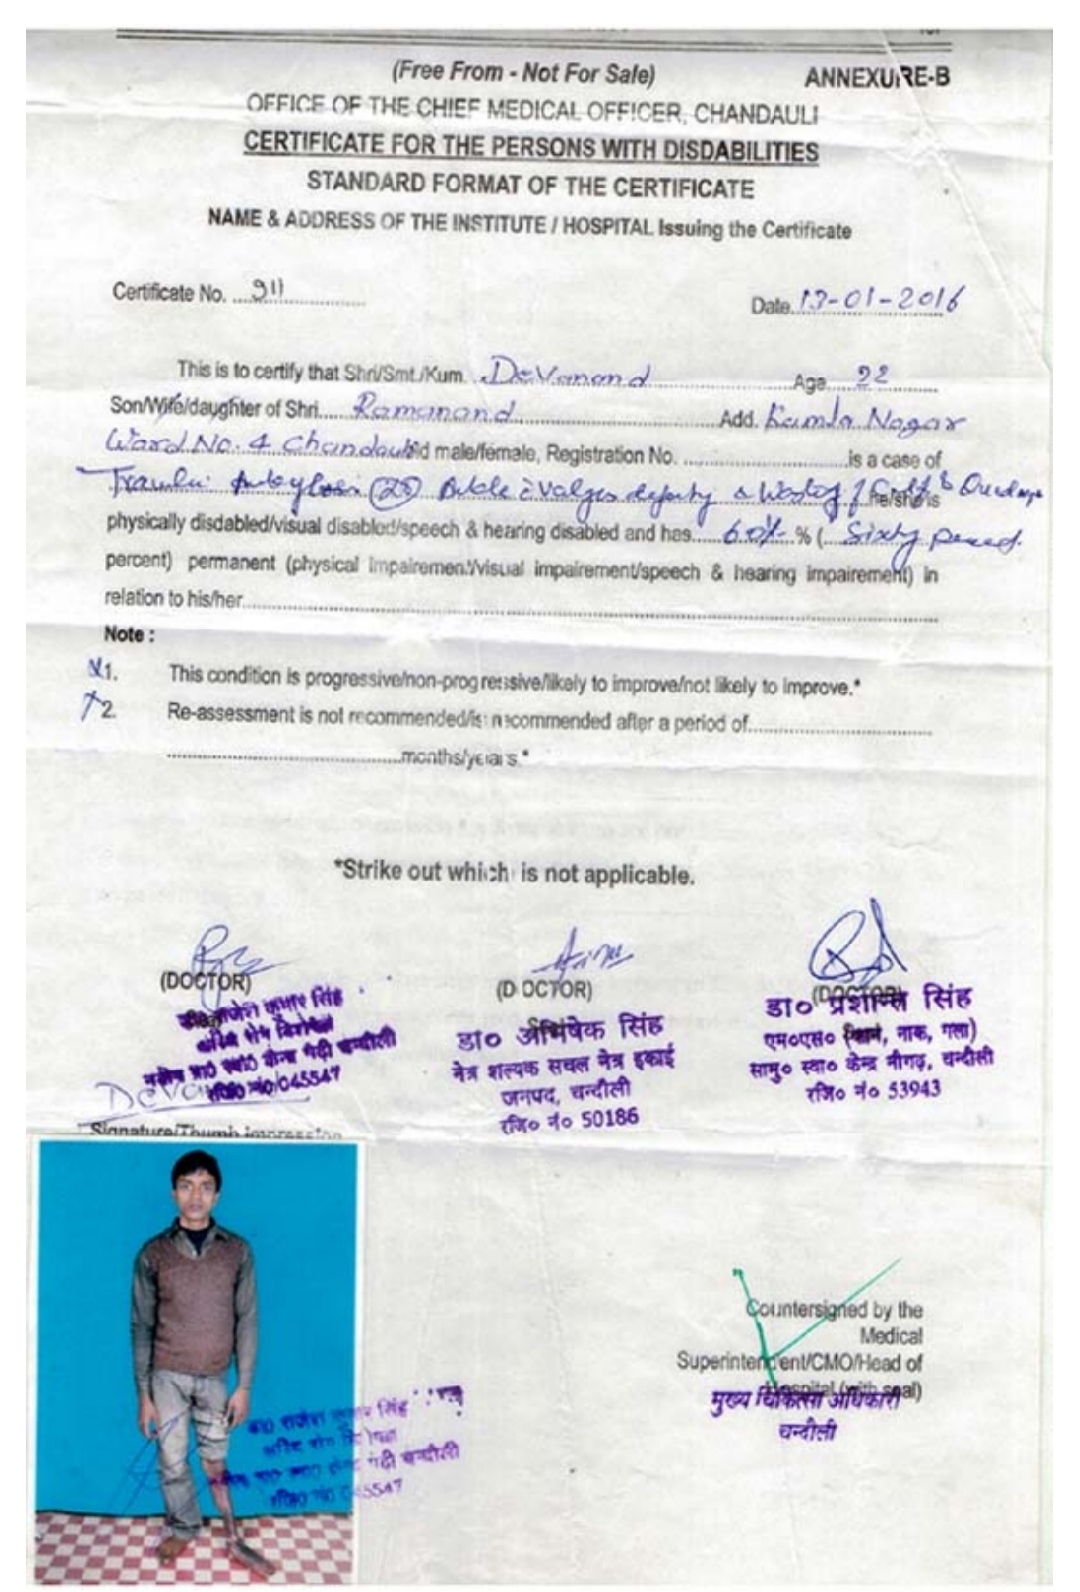 (Free From - Not For Sale)
ANNEXURE-B
OFFICE OF THE CHIEF MEDICAL OFFICER, CHANDAULI
CERTIFICATE FOR THE PERSONS WITH DISDABILITIES
STANDARD FORMAT OF THE CERTIFICATE
NAME & ADDRESS OF THE INSTITUTE / HOSPITAL Issuing the Certificate
Certificate No. 911
Date. 13-01-2016
This is to certify that Shri/Smt./Kum. Devanand Age 22
Son/Wife/daughter of Shri Ramanand Add. Kamla Nagar
Ward No. 4 Chandauli old male/female, Registration No. is a case of
Ankle valgus he/she is
physically disdabled/visual disabled/speech & hearing disabled and has 60% % ( Sixty
percent) permanent (physical Impairement/visual impairement/speech & hearing impairement) in
relation to his/her
Note :
1. This condition is progressive/non-progressive/likely to improve/not likely to improve.*
2. Re-assessment is not recommended/is recommended after a period of
months/years.*
*Strike out which is not applicable.
(DOCTOR) (DOCTOR) (DOCTOR)
कुमार सिंह
चन्दौली
045547
डा० अभिषेक सिंह
नेत्र शल्यक सचल नेत्र इकाई
जनपद, चन्दौली
रजि० नं० 50186
डा० प्रशान्त सिंह
एम०एस० नाक, गला)
सामु० स्वा० केन्द्र नौगढ़, चन्दौली
रजि० नं० 53943
Signature/Thumb impression
Countersigned by the
Medical
Superintendent/CMO/Head of
Hospital (with seal)
मुख्य चिकित्सा अधिकारी
चन्दौली
सिंह
चन्दौली